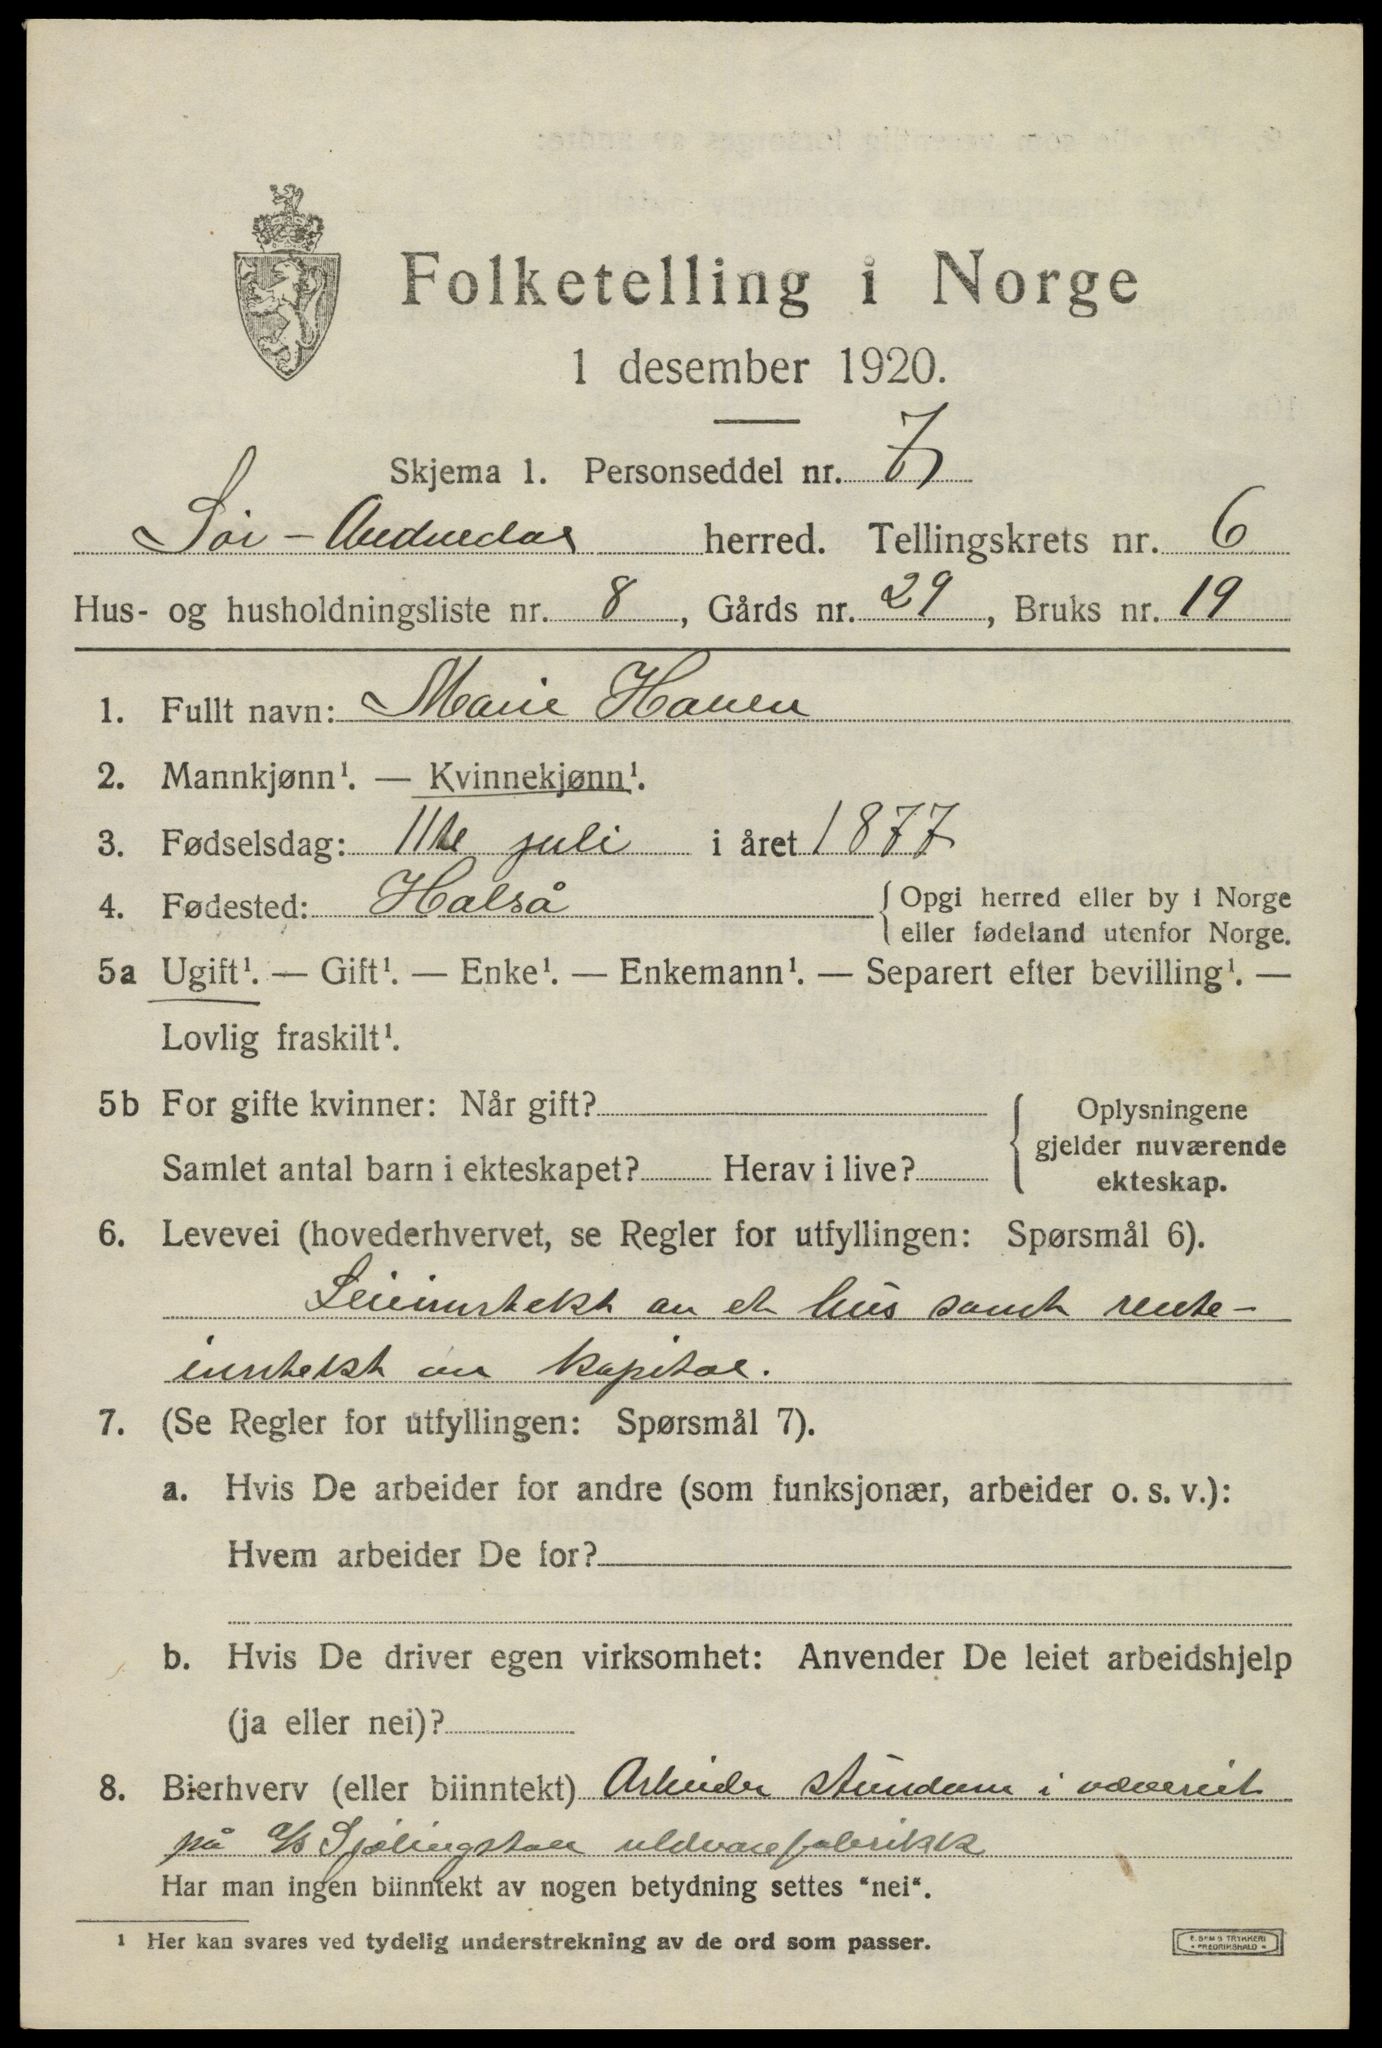 Folketelling i Norge
1 desember 1920.
Skjema 1. Personseddel nr. 7
Sör-Audnedal herred. Tellingskrets nr. 6
Hus- og husholdningsliste nr. 8, Gårds nr. 29, Bruks nr. 19
1. Fullt navn: Marie Hansen
2. Mannkjønn¹. — Kvinnekjønn¹.
3. Fødselsdag: 11te juli i året 1877
4. Fødested: Halså { Opgi herred eller by i Norge
eller fødeland utenfor Norge.
5a Ugift¹. — Gift¹. — Enke¹. — Enkemann¹. — Separert efter bevilling¹. —
Lovlig fraskilt¹.
5b For gifte kvinner: Når gift?
Samlet antal barn i ekteskapet? Herav i live?
Oplysningene
gjelder nuværende
ekteskap.
6. Levevei (hovederhvervet, se Regler for utfyllingen: Spørsmål 6).
Leieinntekt av et hus samt rente-
inntekt av kapital.
7. (Se Regler for utfyllingen: Spørsmål 7).
a. Hvis De arbeider for andre (som funksjonær, arbeider o. s. v.):
Hvem arbeider De for?
b. Hvis De driver egen virksomhet: Anvender De leiet arbeidshjelp
(ja eller nei)?
8. Bierhverv (eller biinntekt) Arbeider stundom i væveriet
på a/s Sjølingstad uldvarefabrikk
Har man ingen biinntekt av nogen betydning settes "nei".
¹ Her kan svares ved tydelig understrekning av de ord som passer.
E. SEM'S TRYKKERI
FREDRIKSHALD